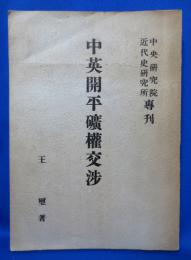 中央研究院
近代史研究所
專刊
中英開平礦權交涉
王璽著